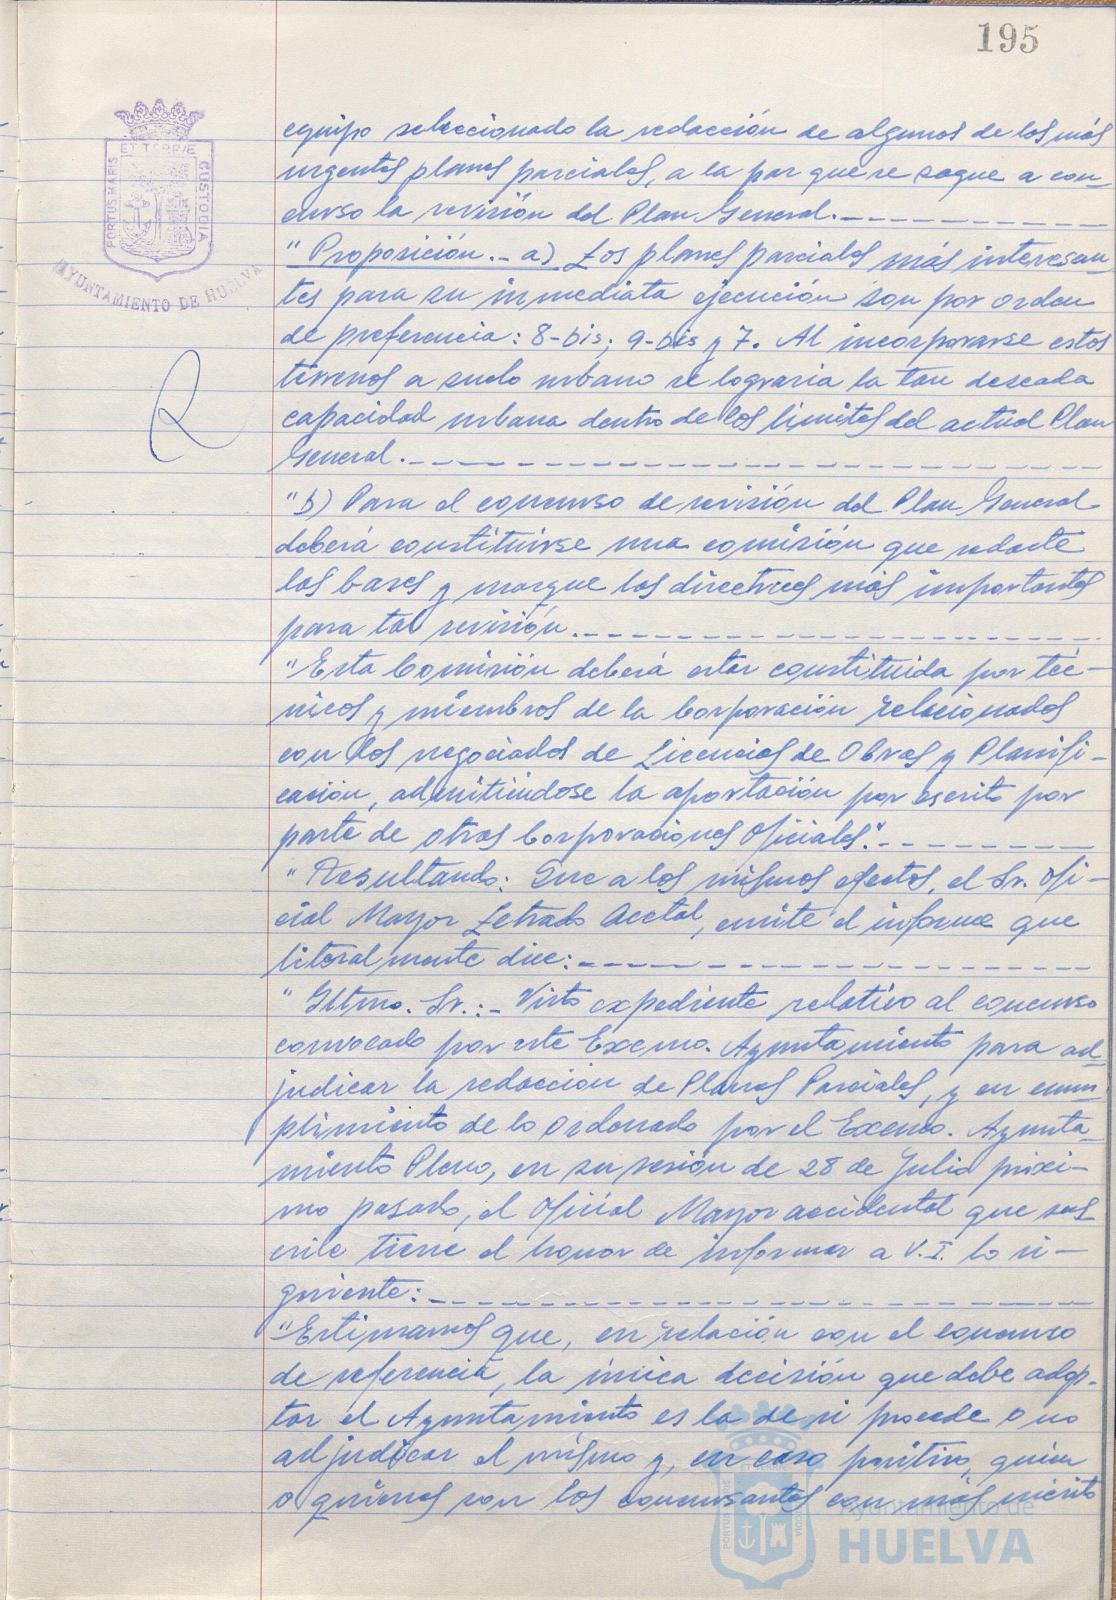 195
PORTUS MARIS ET TERRÆ CUSTODIA
AYUNTAMIENTO DE HUELVA
equipo seleccionado la redacción de algunos de los más
urgentes planes parciales, a la par que se saque a con-
curso la revisión del Plan General.
"Proposición.- a) Los planes parciales más interesan-
tes para su inmediata ejecución son por orden
de preferencia: 8-bis; 9-bis y 7. Al incorporarse estos
terrenos a suelo urbano se lograria la tan deseada
capacidad urbana dentro de los limites del actual Plan
General.
"b) Para el concurso de revisión del Plan General
deberá constituirse una comisión que redacte
las bases y marque las directrices más importantes
para tal revisión.
"Esta Comisión deberá estar constituida por téc-
nicos y miembros de la Corporación relacionados
con los negociados de Licencias de Obras y Planifi-
cación, admitiéndose la aportación por escrito por
parte de otras Corporaciones Oficiales".
"Resultando: Que a los mismos efectos, el Sr. Ofi-
cial Mayor Letrado Acctal, emite el informe que
literalmente dice:
"Iltmo. Sr.:- Visto expediente relativo al concurso
convocado por este Excmo. Ayuntamiento para ad-
judicar la redacción de Planes Parciales, y en cum-
plimiento de lo ordenado por el Excmo. Ayunta-
miento Pleno, en su sesión de 28 de Julio próxi-
mo pasado, el Oficial Mayor accidental que sus-
cribe tiene el honor de informar a V.I. lo si-
guiente:
"Estimamos que, en relación con el concurso
de referencia, la única decisión que debe adop-
tar el Ayuntamiento es la de si procede o no
adjudicar el mismo y, en caso positivo, quien
o quienes son los concursantes con más mérito
Ayuntamiento de
HUELVA